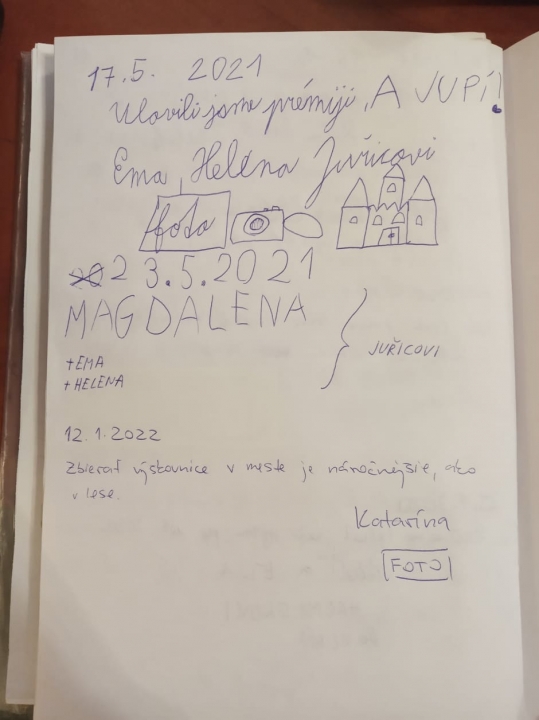 17.5. 2021
Ulovili jsme prémiji, A JUPÍ!
Ema, Helena Juřicovi
foto
23.5.2021
MAGDALENA
+EMA
+HELENA
JUŘICOVI
12.1.2022
Zbierať výskovnice v meste je náročnejšie, ako
v lese.
Katarína
FOTO